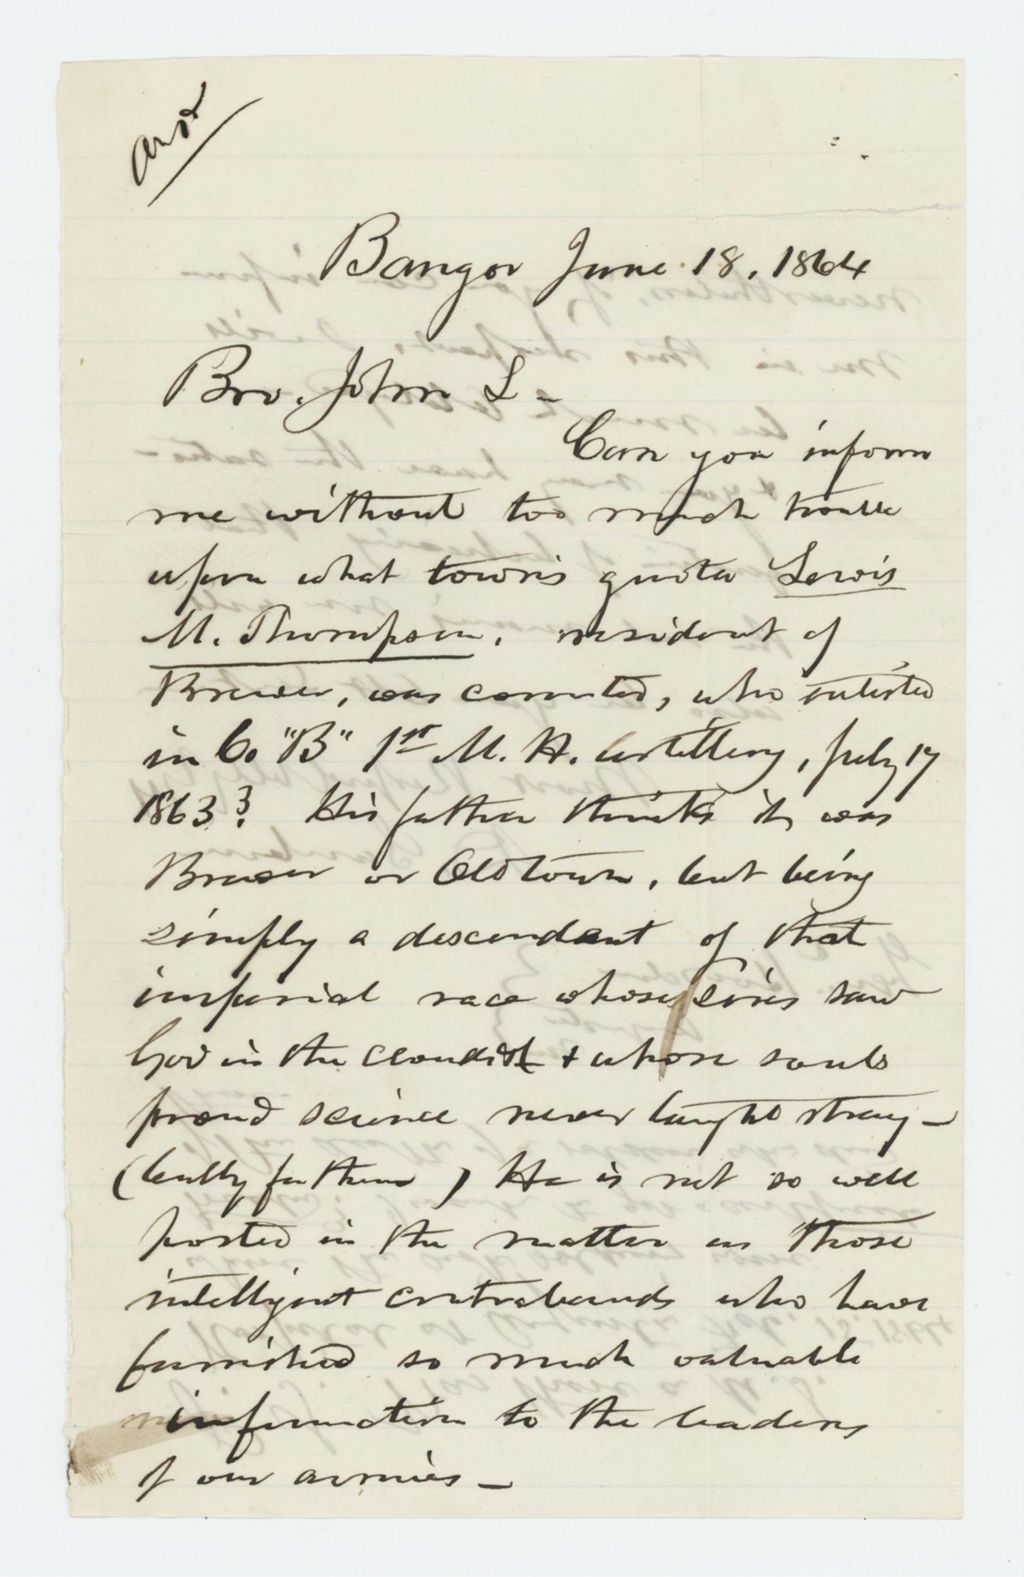 Ansd
Bangor June 18, 1864
Bro. John L -
Can you inform
me without too much trouble
upon what town's quota Lewis
M. Thompson, resident of
Brewer, was counted, who enlisted
in Co "B" 1st M. H. Artillery, July 17
1863? His father thinks it was
Brewer or Oldtown, but being
simply a descendant of that
imperial race whose sires saw
God in the clouds & whose souls
proud science never taught stray -
(bully for them) He is not so well
posted in the matter as those
intelligent contrabands who have
furnished so much valuable
information to the leaders
of our armies -